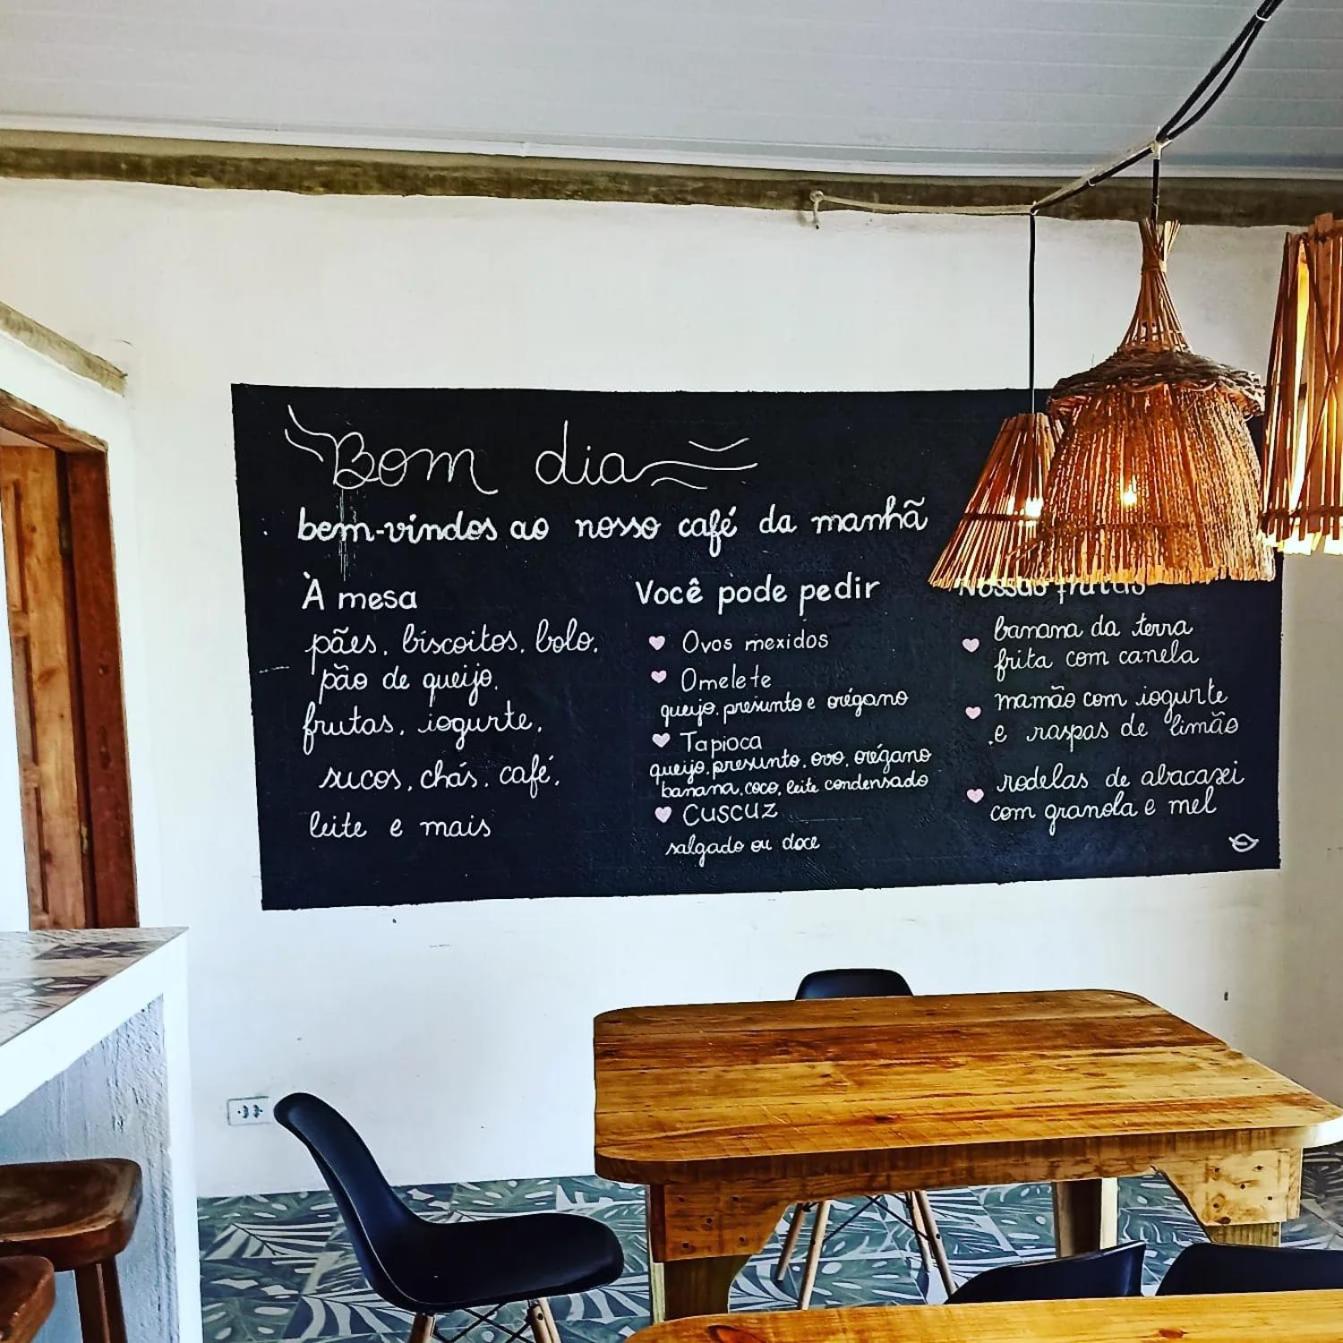 Bom dia
bem-vindos ao nosso café da manhã
À mesa
pães, biscoitos, bolo,
pão de queijo,
frutas, iogurte,
sucos, chás, café,
leite e mais
Você pode pedir
Ovos mexidos
Omelete
queijo, presunto e orégano
Tapioca
queijo, presunto, ovo, orégano
banana, coco, leite condensado
Cuscuz
salgado ou doce
Nossas frutas
banana da terra
frita com canela
mamão com iogurte
e raspas de limão
rodelas de abacaxi
com granola e mel